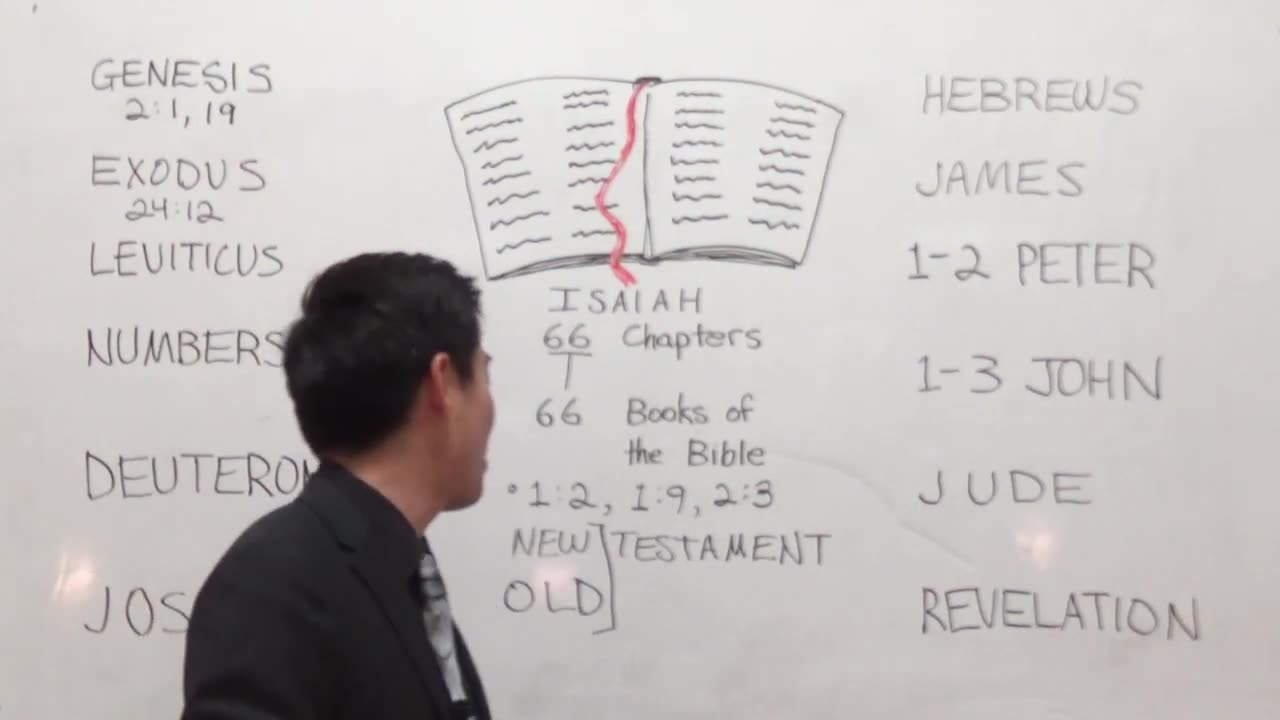 GENESIS
2:1, 19
EXODUS
24:12
LEVITICUS
NUMBERS
DEUTERON
JOS
ISAIAH
66 Chapters
66 Books of
the Bible
• 1:2, 1:9, 2:3
NEW] TESTAMENT
OLD
HEBREWS
JAMES
1-2 PETER
1-3 JOHN
JUDE
REVELATION